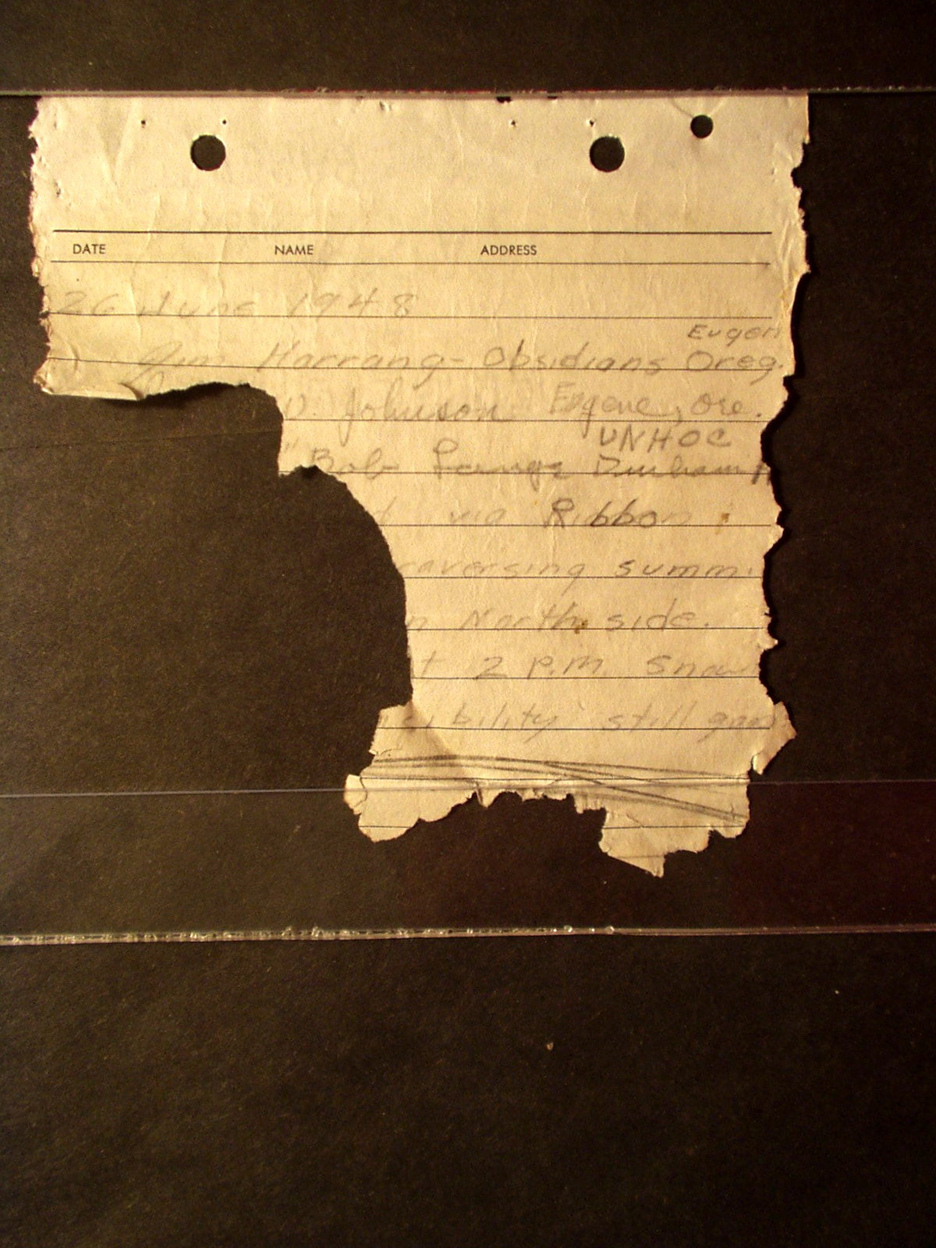 DATE NAME ADDRESS
26 June 1948
Eugen
Jim Harrang - Obsidians Oreg.
D. Johnson Eugene, Ore.
UNHOC
" Bob Durham
via Ribbon
raversing summi
n North side.
t 2 p.m. snow
sibility still